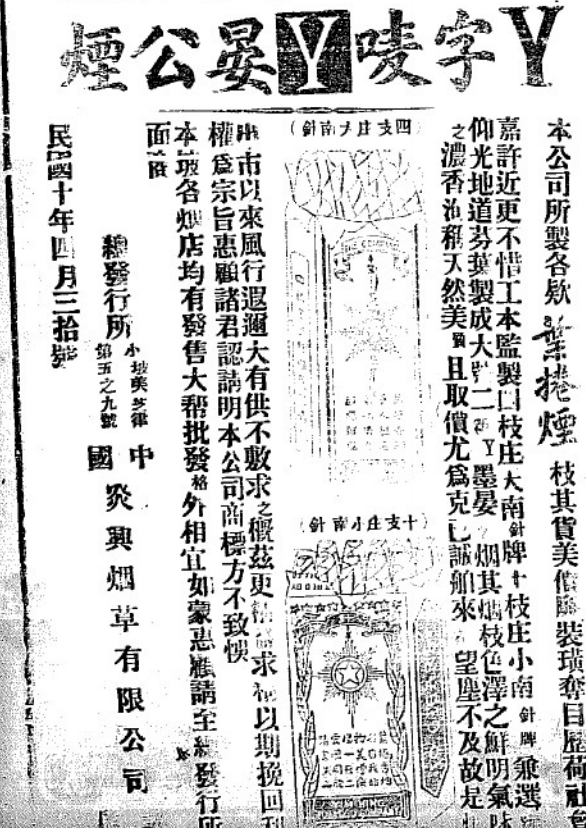 Y字唛Y晏公煙
本公司所製各欵葉捲煙枝其貨美價廉裝璜奪目歷荷社會
嘉許近更不惜工本監製四枝庄大南針牌十枝庄小南針牌兼選
仰光地道芬葉製成大號二號Y墨晏烟其烟枝色澤之鮮明氣味
之濃香洵稱天然美且取價尤爲克己誠舶來望塵不及故是
(四支庄大南針)
(十支庄小南針)
市以來風行遐邇大有供不敷求之概茲更求以期挽回利
權爲宗旨惠顧諸君認請明本公司商標方不致悞
本坡各烟店均有發售大帮批發格外相宜如蒙惠顧請至總發行所
面
總發行所
小坡美芝律
第五之九號
中國
炎興烟草有限公司
民國十年四月三拾號